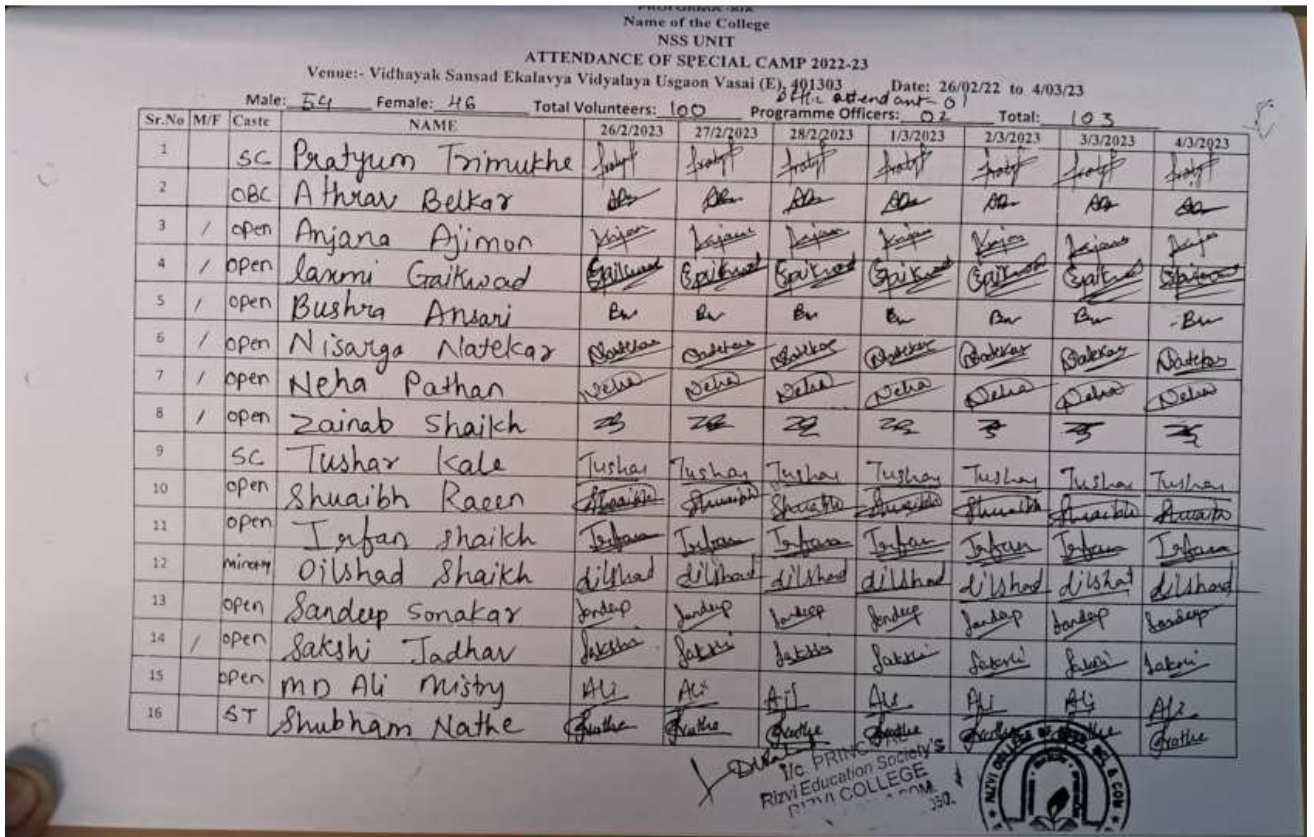 PROFORMA -XIX
Name of the College
NSS UNIT
ATTENDANCE OF SPECIAL CAMP 2022-23
Venue:- Vidhayak Sansad Ekalavya Vidyalaya Usgaon Vasai (E), 401303 Date: 26/02/22 to 4/03/23
attendant- 01
Male: 54 Female: 46 Total Volunteers: 100 Programme Officers: 02 Total: 103
Sr.No M/F Caste NAME 26/2/2023 27/2/2023 28/2/2023 1/3/2023 2/3/2023 3/3/2023 4/3/2023
1 SC Pratyum Trimukhe
2 OBC Athrav Belkar
3 / open Anjana Ajimon
4 / open laxmi Gaikwad Gaikwad Gaikwad Gaikwad Gaikwad Gaikwad Gaikwad
5 / open Bushra Ansari Bu Bu Bu Bu Bu Bu Bu
6 / open Nisarga Natekar Natekar Natekar Natekar Natekar Natekar Natekar Natekar
7 / open Neha Pathan Neha Neha Neha Neha Neha Neha Neha
8 / open Zainab Shaikh
9 SC Tushar Kale Tushar Tushar Tushar Tushar Tushar Tushar Tushar
10 open Shuaibh Raeen Shuaibh Shuaibh Shuaibh Shuaibh Shuaibh Shuaibh Shuaibh
11 open Irfan Shaikh Irfan Irfan Irfan Irfan Irfan Irfan Irfan
12 Oilshad Shaikh dilshad dilshad dilshad dilshad dilshad dilshad dilshad
13 open Sandeep Sonakar Sandeep Sandeep Sandeep Sandeep Sandeep Sandeep Sandeep
14 / open Sakshi Jadhav Sakshi Sakshi Sakshi Sakshi Sakshi Sakshi Sakshi
15 open MD Ali Mistry Ali Ali Ali Ali Ali Ali Ali
16 ST Shubham Nathe
I/c. PRINCIPAL
Rizvi Education Society's
RIZVI COLLEGE
RIZVI COLLEGE OF ARTS, SCI. & COM